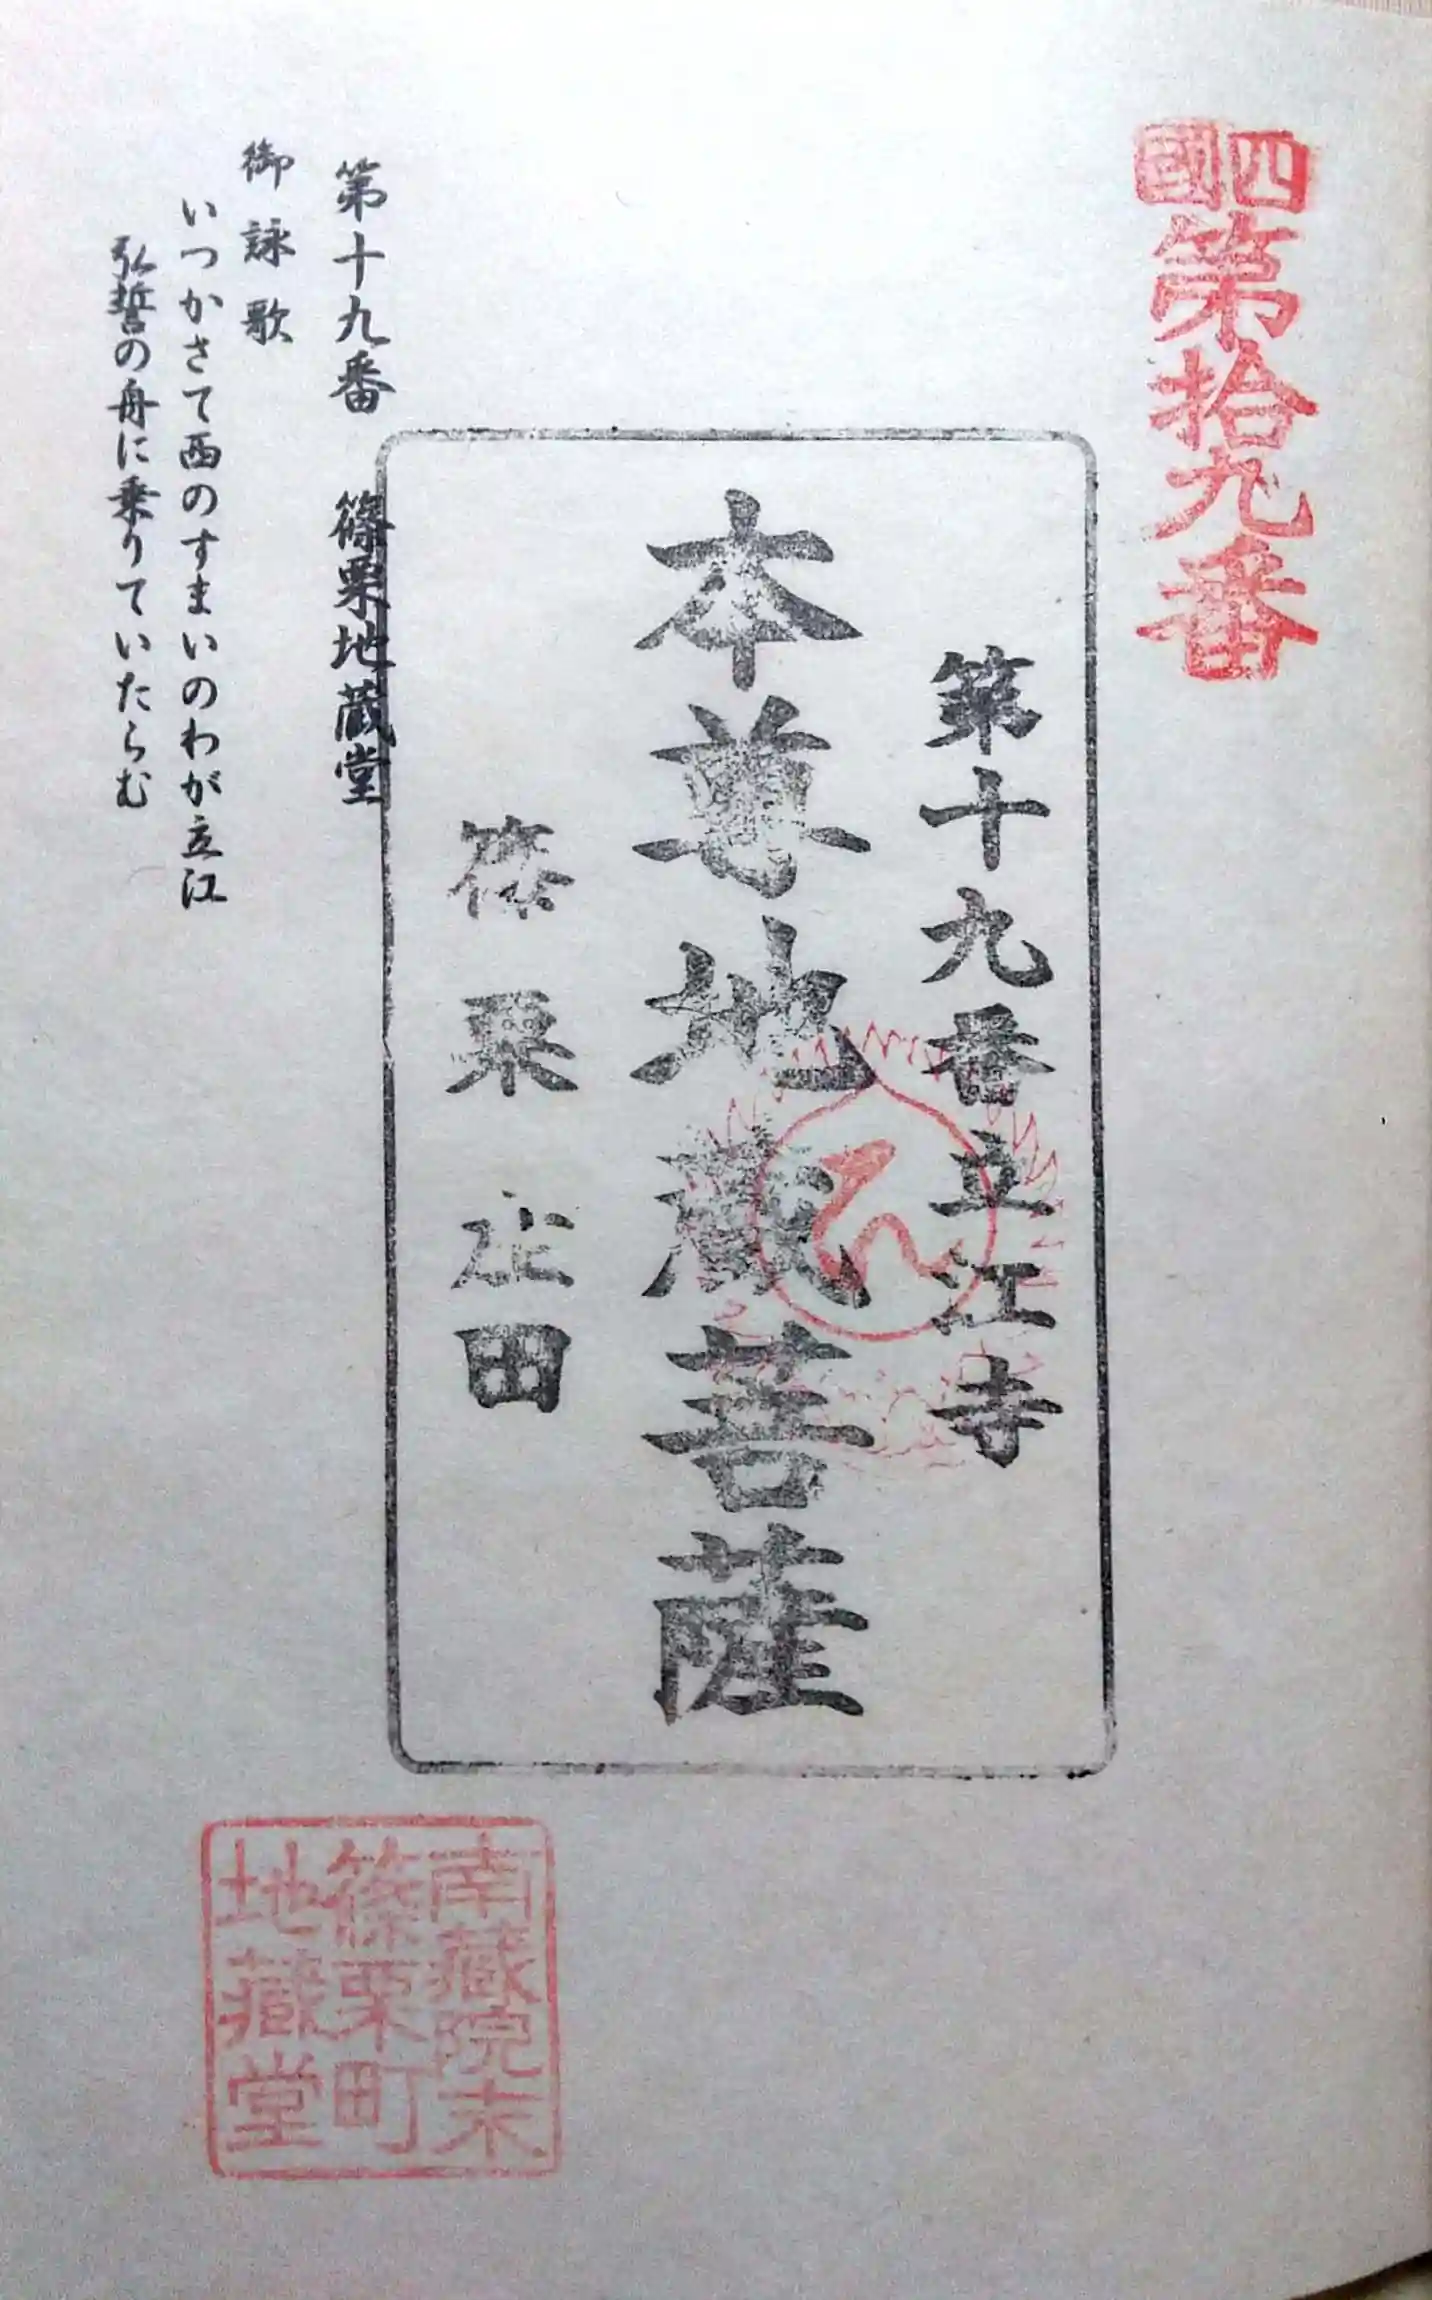 四國
第拾九番
第十九番立江寺
本尊地蔵菩薩
篠栗 上田
第十九番 篠栗地蔵堂
御詠歌
いつかさて西のすまいのわが立江
弘誓の舟に乗りていたらむ
南蔵院末
篠栗町
地蔵堂